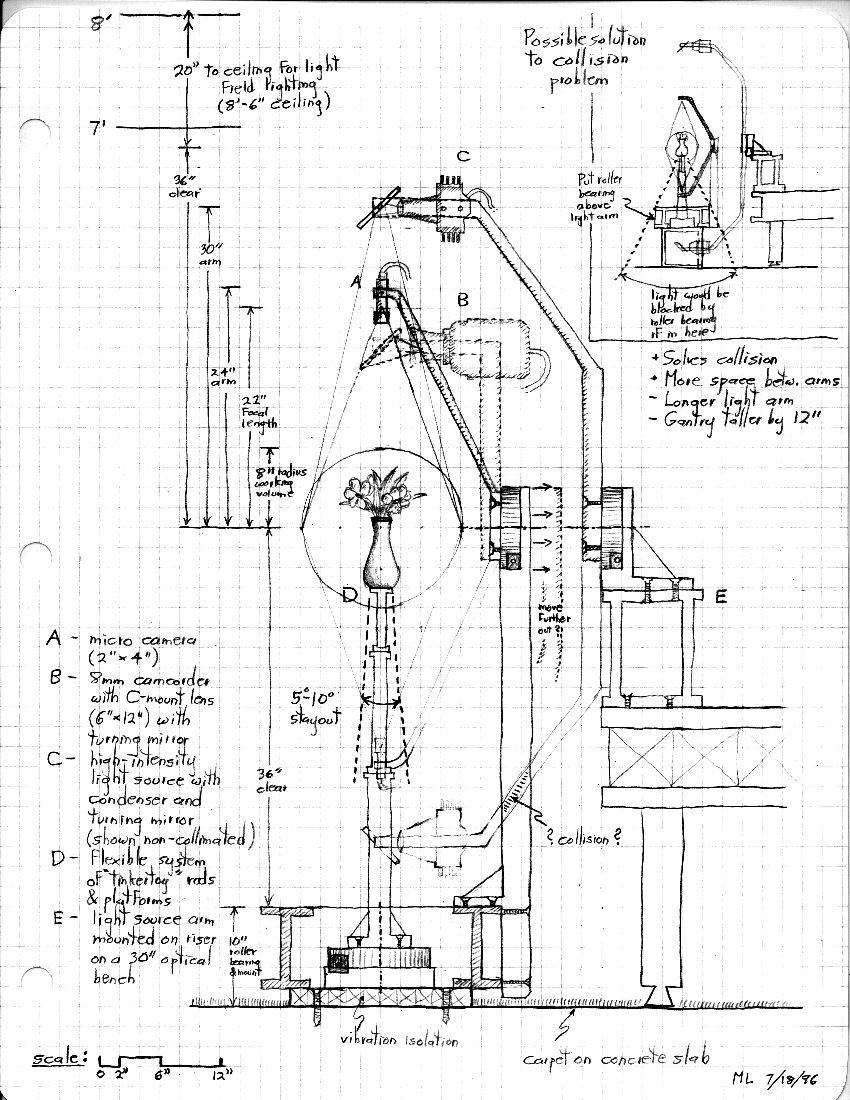 8'
20" to ceiling For light
Field lighting
(8'-6" ceiling)
7'
36"
clear
30"
arm
24"
arm
22"
Focal
length
8" radius
working
volume
C
A
B
D
E
Possible solution
to collision
problem
Put roller
bearing
above
light arm
light would be
blocked by
roller bearing
if in here
+ Solves collision
+ More space betw. arms
- Longer light arm
- Gantry taller by 12"
move
further
out?
5°-10°
stayout
36"
clear
? collision?
10"
roller
bearing
& mount
A - micro camera
(2" x 4")
B - 8mm camcorder
with C-mount lens
(6" x 12") with
turning mirror
C - high-intensity
light source with
condenser and
turning mirror
(shown non-collimated)
D - Flexible system
of "tinkertoy" rods
& platforms
E - light source arm
mounted on riser
on a 30" optical
bench
vibration isolation
carpet on concrete slab
scale:
0 2" 6" 12"
ML 7/18/96